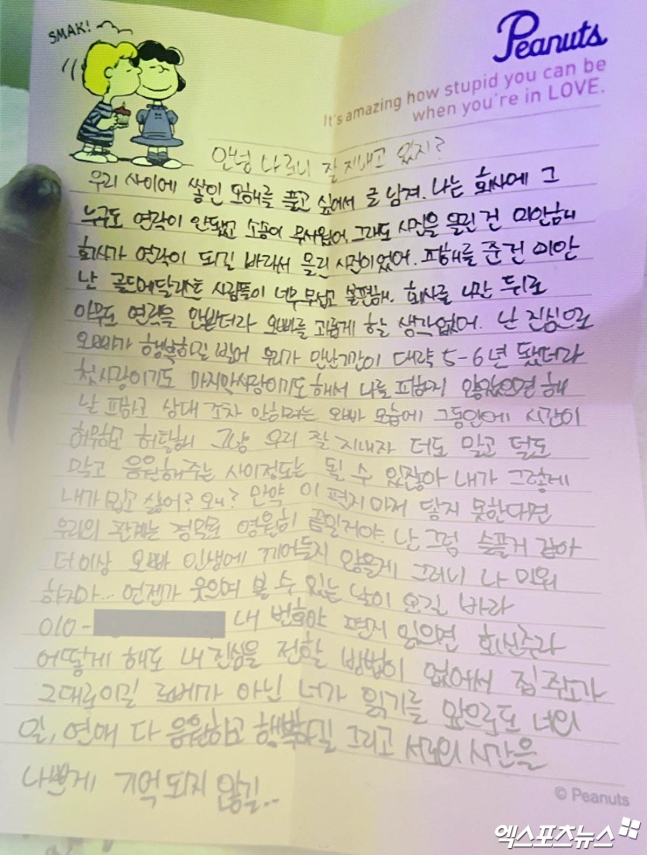 SMAK!
Peanuts
It's amazing how stupid you can be
when you're in LOVE.
안녕 나 잘 지내고 있지?
우리 사이에 쌓인 오해를 풀고 싶어서 글 남겨. 나는 회사에 그
누구도 연락이 안됐고 소송이 무서웠어. 그래도 사진을 올린 건 미안해
회사가 연락이 되길 바라서 올린 사진이었어. 피해를 준 건 미안
난 골드메달리스트 사람들이 너무 무섭고 불편해. 회사를 나간 뒤로
아무도 연락을 안받더라 오빠를 괴롭게 할 생각없어. 난 진심으로
오빠가 행복하길 빌어 우리가 만난기간이 대략 5-6년 됐더라
첫사랑이기도 마지막사랑이기도 해서 나를 피하지 않았으면 해
날 피하고 상대 조차 안하려는 오빠 모습에 그동안에 시간이
허무하고 허탈해 그냥 우리 잘 지내자 더도 말고 덜도
말고 응원해주는 사이정도는 될 수 있잖아 내가 그렇게
내가 밉고 싫어? 왜? 만약 이 편지마저 닿지 못한다면
우리의 관계는 정말로 영원히 끝일거야. 난 그럼 슬플거 같아
더 이상 오빠 인생에 끼어들지 않을게 그러니 나 미워
하지마.. 언젠가 웃으며 볼 수 있는 날이 오길 바라
010- 내 번호야 편지 읽으면 회신주라
어떻게 해도 내 진심을 전할 방법이 없어서 집 주소가
그대로이길 로베가 아닌 너가 읽기를 앞으로도 너의
일, 연애 다 응원하고 행복하길 그리고 서로의 시간을
나쁘게 기억되지 않길..
© Peanuts
엑스포츠뉴스